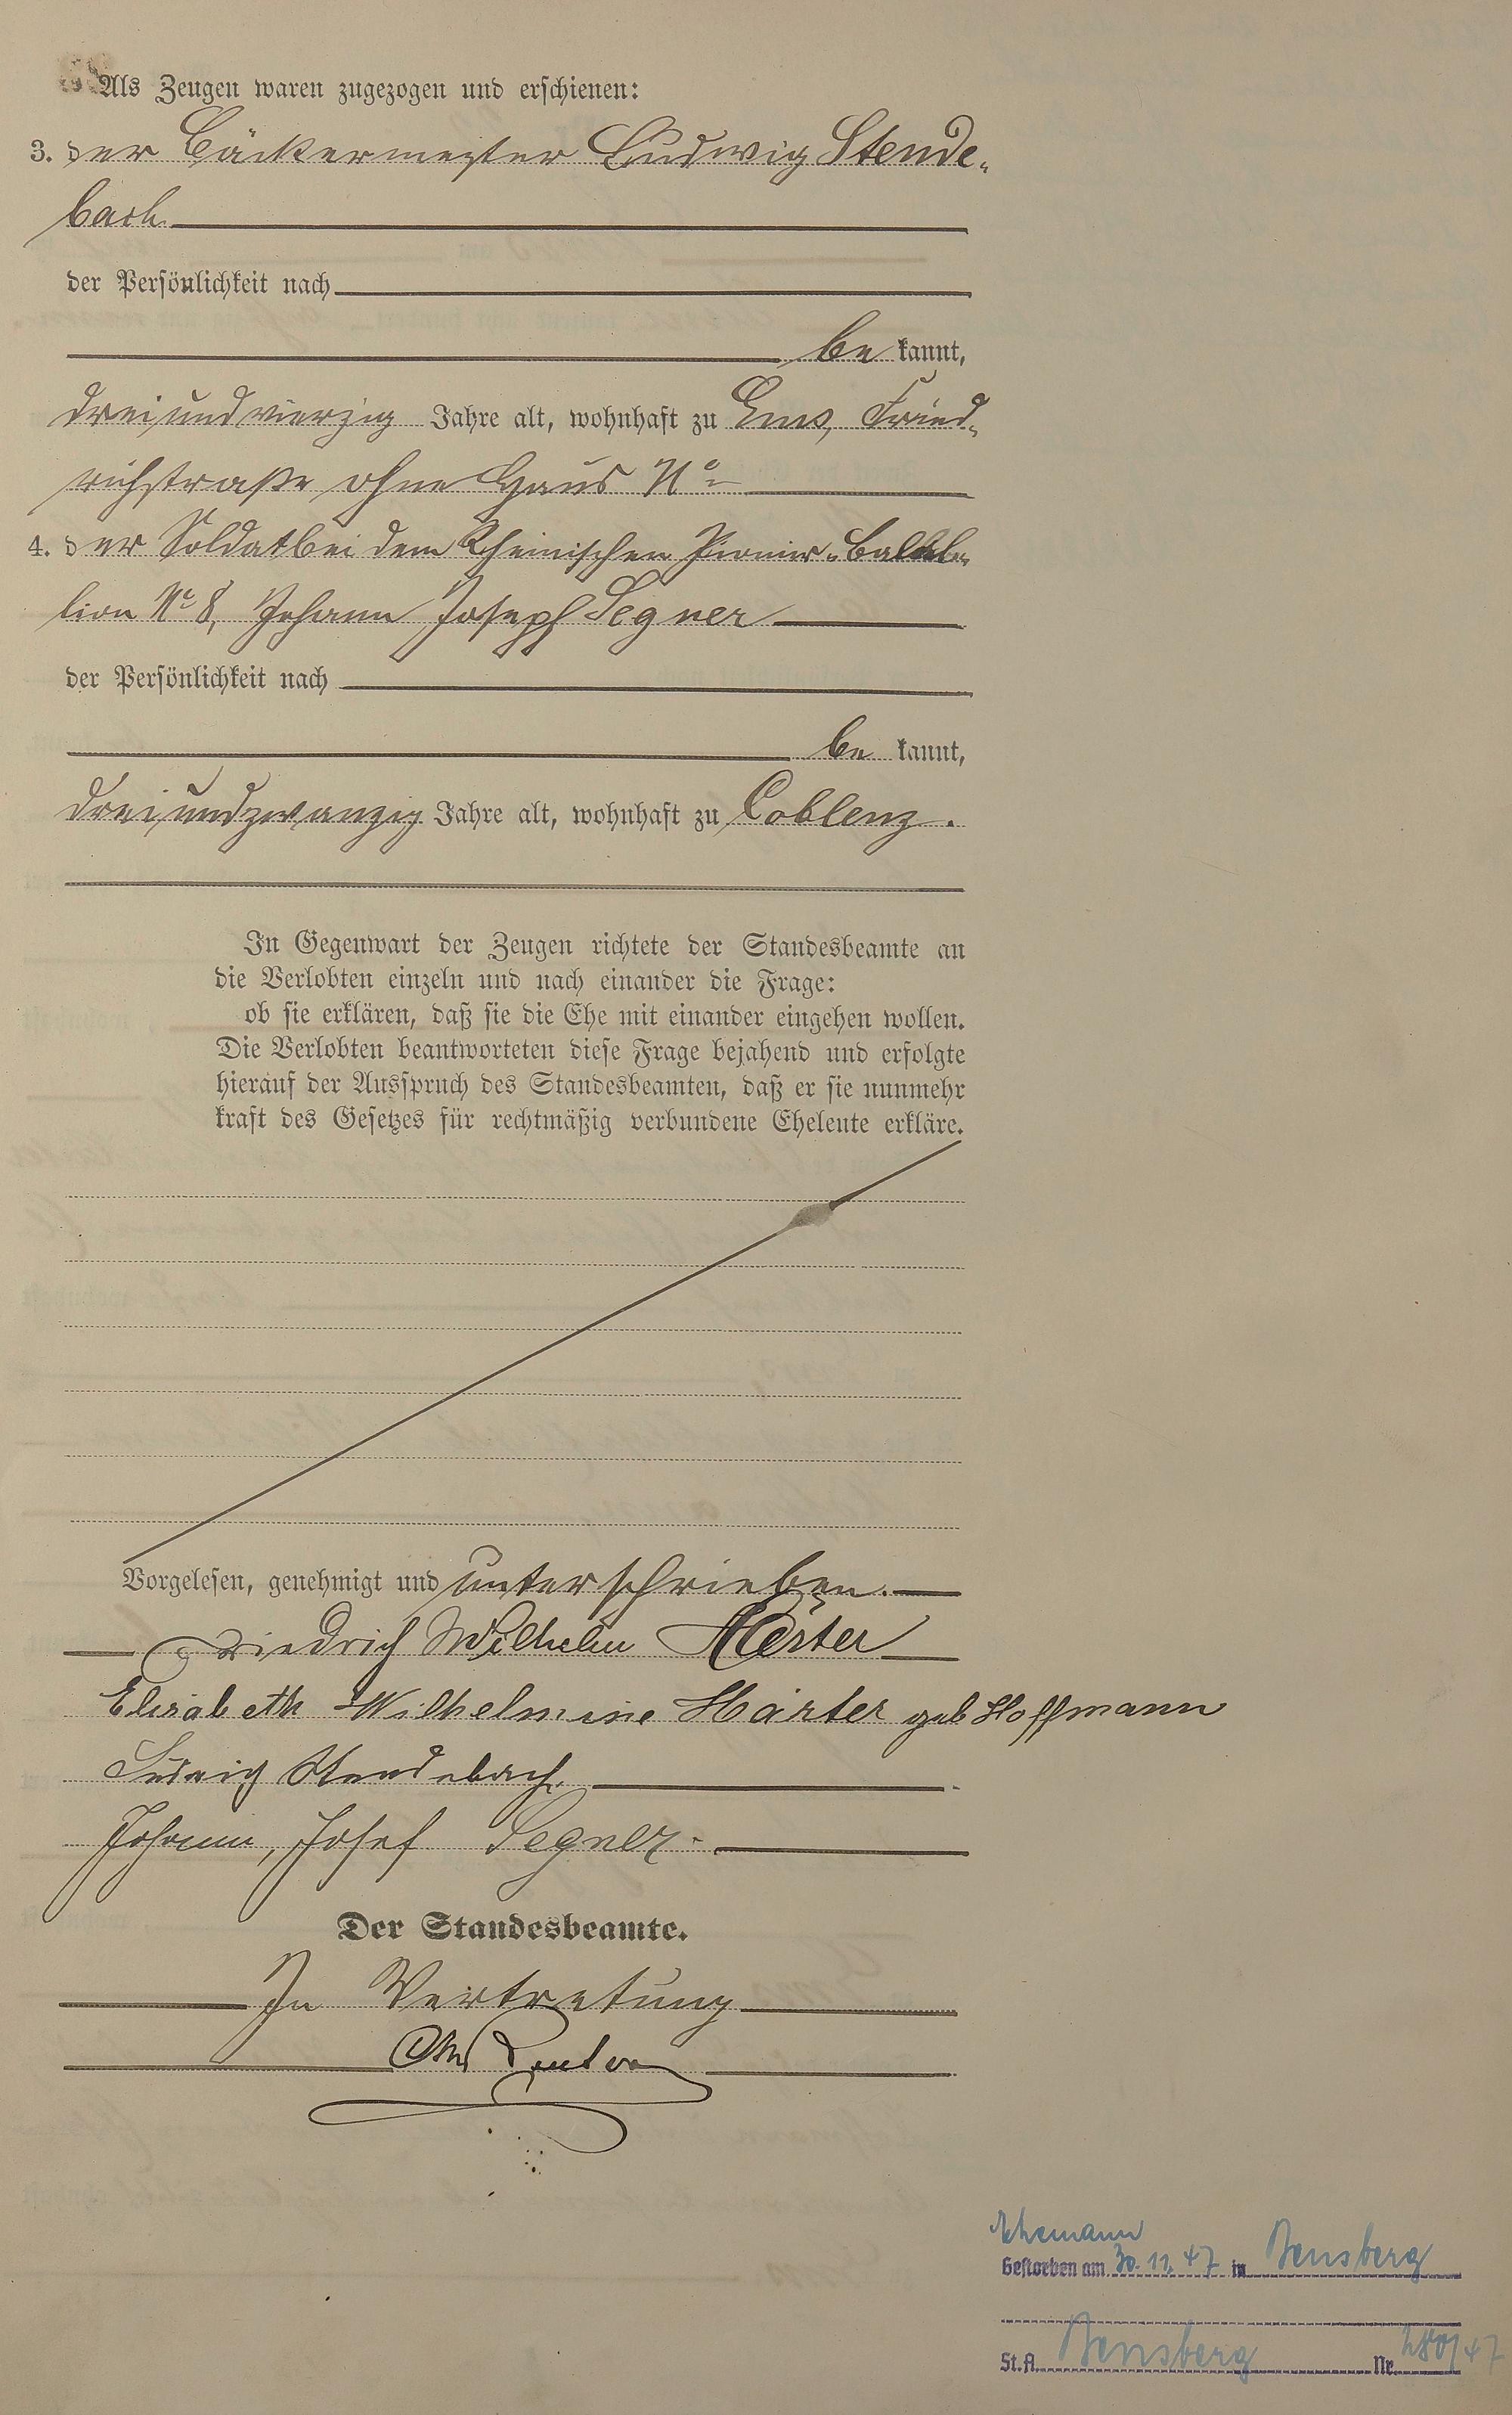 Als Zeugen waren zugezogen und erschienen:
3. der Bäckermeister Ludwig Stende-
bach
der Persönlichkeit nach
be kannt,
dreiundvierzig Jahre alt, wohnhaft zu Ems, Fried-
richstraße ohne Haus No
4. der Soldat bei dem Rheinischen Pionier-Batail-
lion No 8, Johann Joseph Segner
der Persönlichkeit nach
be kannt,
dreiundzwanzig Jahre alt, wohnhaft zu Coblenz.
In Gegenwart der Zeugen richtete der Standesbeamte an
die Verlobten einzeln und nach einander die Frage:
ob sie erklären, daß sie die Ehe mit einander eingehen wollen.
Die Verlobten beantworteten diese Frage bejahend und erfolgte
hierauf der Ausspruch des Standesbeamten, daß er sie nunmehr
kraft des Gesetzes für rechtmäßig verbundene Eheleute erkläre.
Vorgelesen, genehmigt und unterschrieben.
Friedrich Wilhelm Härter
Elisabeth Wilhelmine Härter geb Hoffmann
Ludwig Stendebach.
Johann, Josef Segner.
Der Standesbeamte.
In Vertretung
Ehemann
Gestorben am 30.11.47 in Bensberg
St.A. Bensberg Nr. 280/47